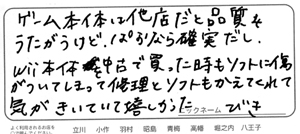 ゲーム本体は他店だと品質を
うたがうけど、ぱおなら確実だし、
Wii本体を中古で買った時もソフトに傷
がついてしまって修理とソフトもかえてくれて
気がきいていて嬉しかった
ックネーム
よく利用されるお店を
立川 小作 羽村 昭島 青梅 高幡 堀之内 八王子